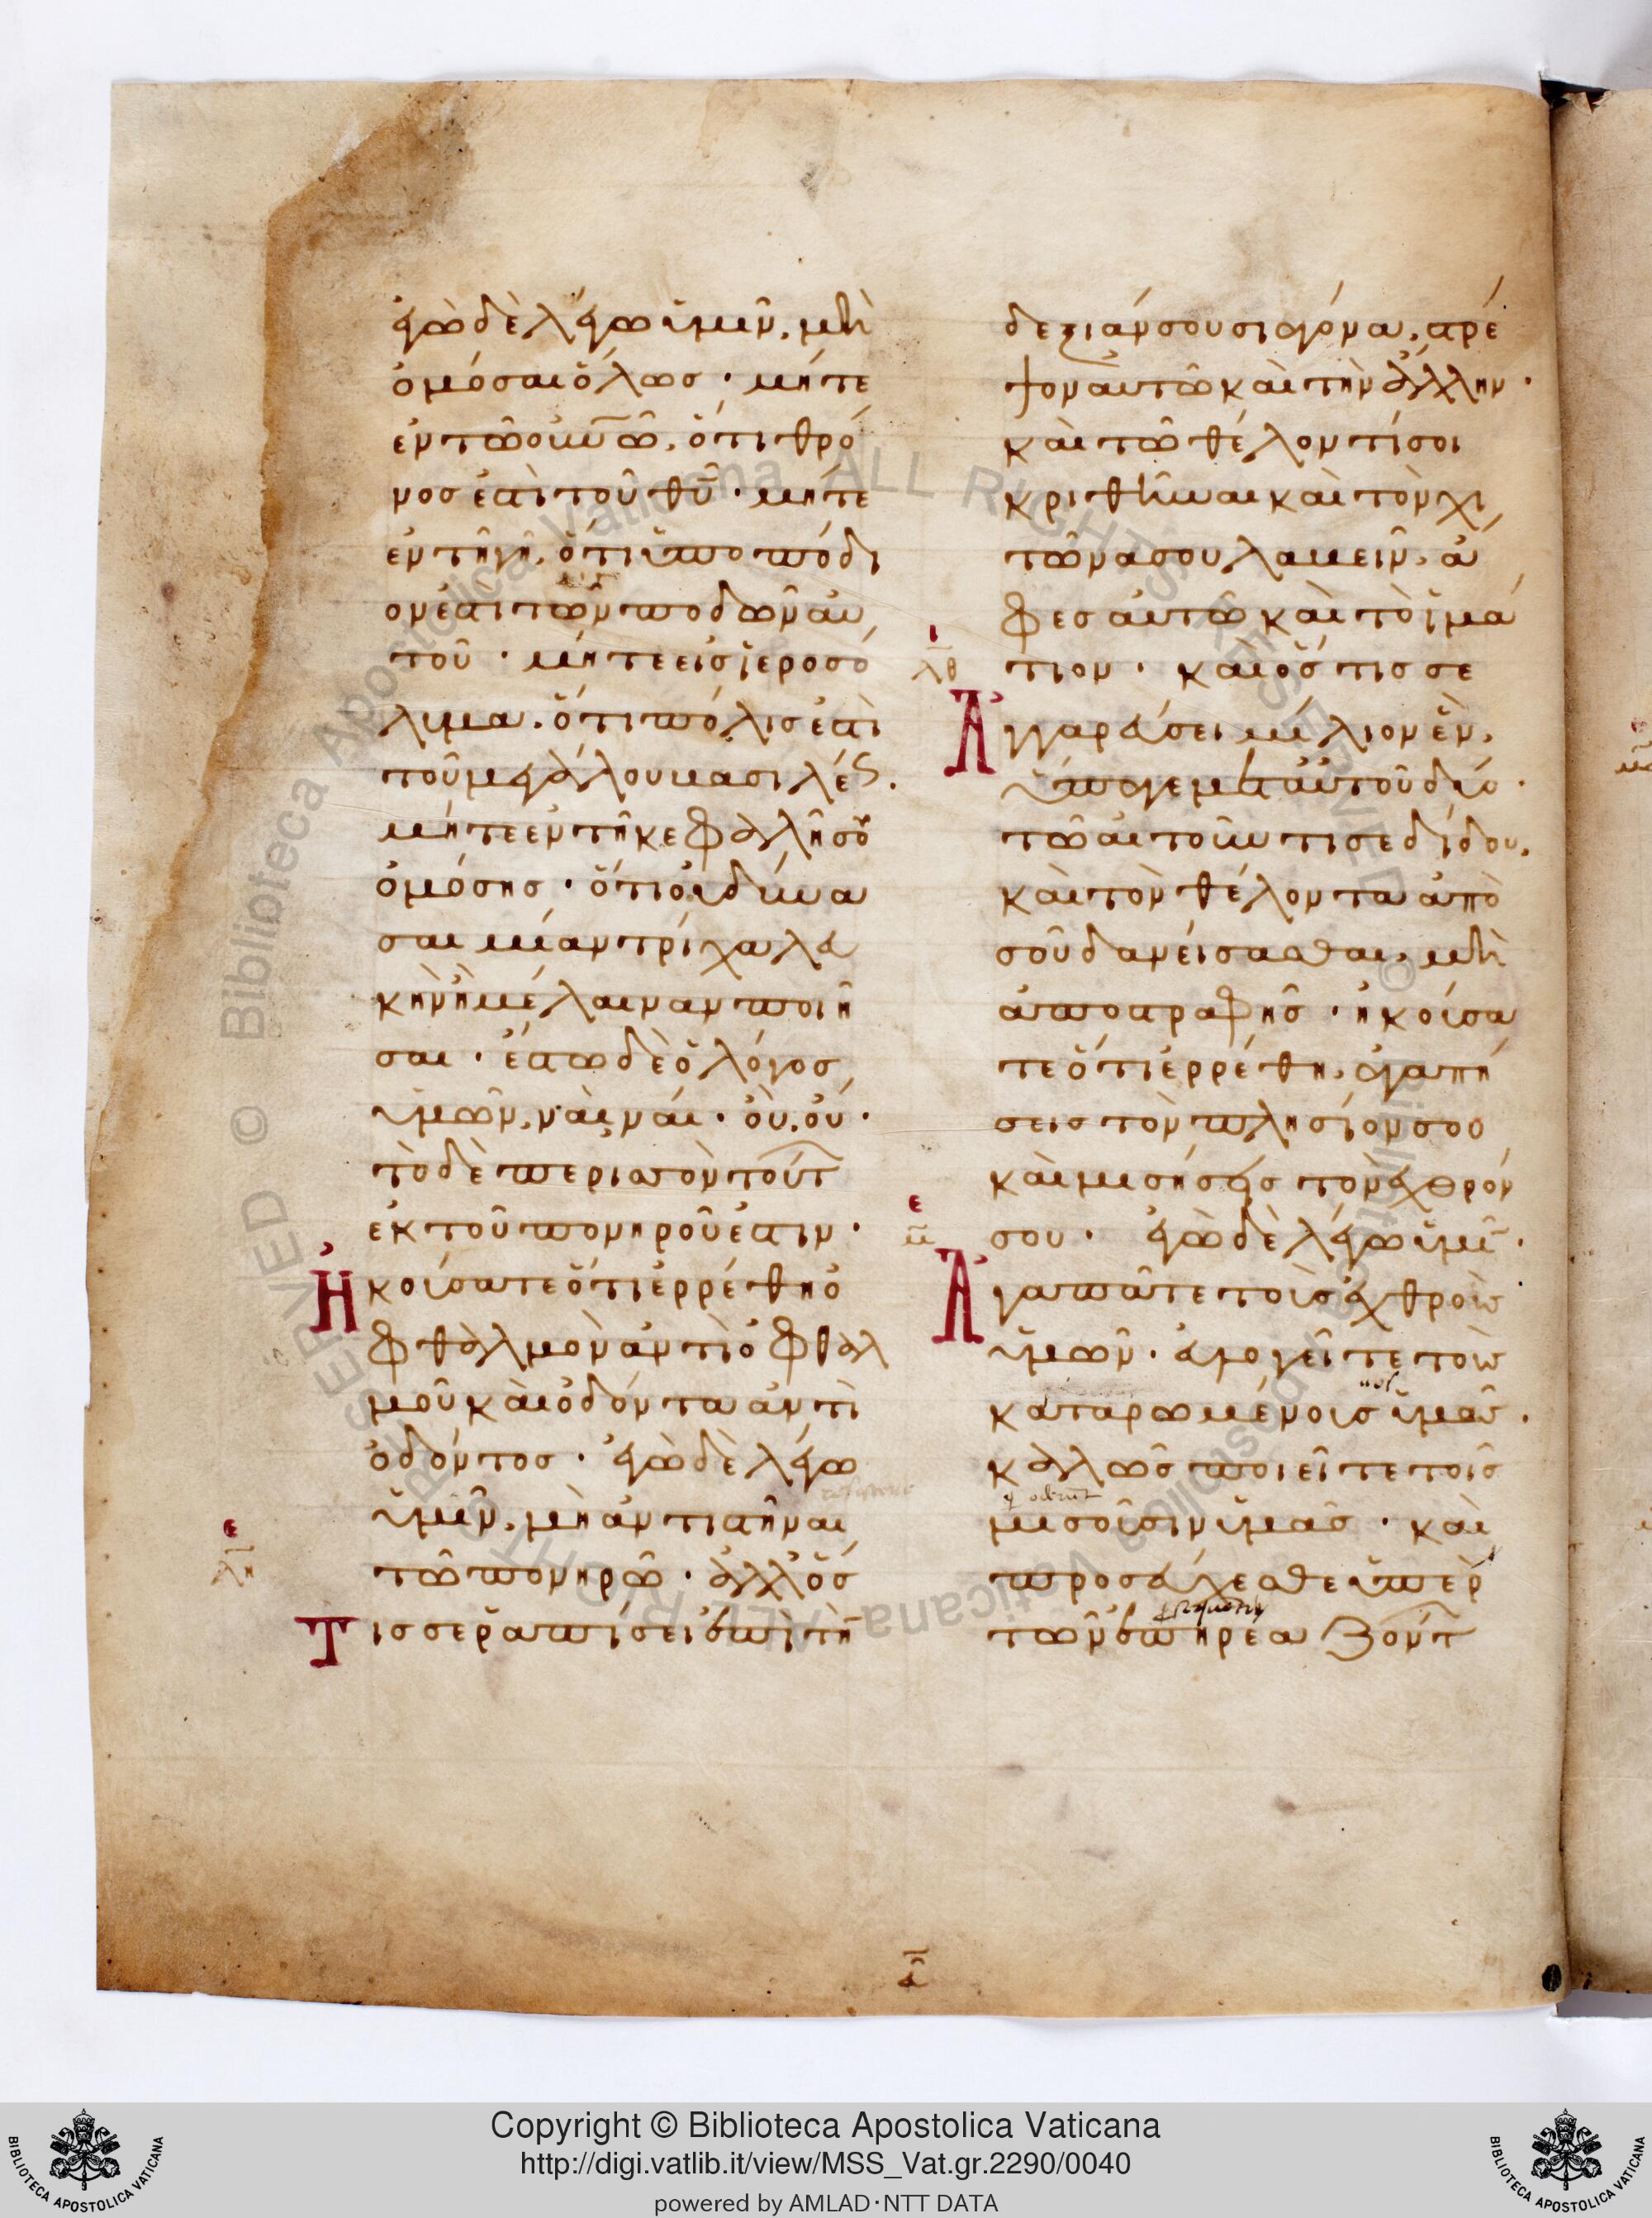 ἐγὼ δὲ λέγω ὑμῖν, μὴ
ὀμόσαι ὅλως · μήτε
ἐν τῶ οὐνῶ, ὅτι θρό
νος ἐστὶ τοῦ θυ · μήτε
ἐν τῆ γῆ, ὅτι ὑποπόδι
ον ἐστι τῶν ποδῶν αὐ
τοῦ · μήτε εἰς ἱεροσό
λυμα. ὅτι πόλις ἐστὶ
τοῦ μεγάλου βασιλέως.
μήτε ἐν τῆ κεφαλῆ σου
ὀμόσης · ὅτι οὐ δύνα
σαι μίαν τρίχα λευ
κὴν ἢ μέλαιναν ποιῆ
σαι · ἔστω δὲ ὁ λόγος
ὑμῶν, ναὶ, ναί · οὒ, οὔ ·
τὸ δὲ περισσὸν τούτ
ἐκ τοῦ πονηροῦ ἐστιν ·
Ἠκούσατε ὅτι ἐρρέθη ὀ
φθαλμὸν ἀντὶ ὀφθαλ
μοῦ καὶ ὀδόντα ἀντὶ
ὀδόντος · ἐγὼ δὲ λέγω
ὑμῖν, μὴ ἀντιστῆναι
τῶ πονηρῶ · ἀλλ' ὅς
ε
λη
Τις σε ῥαπίσει ἐπὶ τὴ
δεξιάν σου σιαγόνα, στρέ
ψον αὐτῶ καὶ τὴν ἄλλην ·
καὶ τῶ θέλοντί σοι
κριθῆναι καὶ τὸν χι
τῶνα σου λαβεῖν, ἄ
φες αὐτῶ καὶ τὸ ἱμά
ι
λθ
τιον · καὶ ὅς τις σε
Ἀγγαρεύσει μίλιον ἓν,
ὕπαγε μετ' αὐτοῦ δύο ·
τῶ αἰτοῦντι σε δίδου,
καὶ τὸν θέλοντα ἀπὸ
σοῦ δανείσασθαι, μὴ
ἀποστραφῆς · ἠκούσα
τε ὅτι ἐρρέθη, ἀγαπή
σεις τὸν πλησίον σου
καὶ μισήσεις τὸν ἐχθρόν
ε
μ
σου · ἐγὼ δὲ λέγω ὑμῖ ·
Ἀγαπᾶτε τοὺς ἐχθροὺς
ὑμῶν · εὐλογεῖτε τοὺς
uos
καταρωμένοις ὑμᾶς ·
καλῶς ποιεῖτε τοῖς
q oderunt
μισοῦσιν ὑμᾶς · καὶ
προσεύχεσθε ὑπὲρ
τῶν ἐπηρεαζόντ
Copyright © Biblioteca Apostolica Vaticana
http://digi.vatlib.it/view/MSS_Vat.gr.2290/0040
powered by AMLAD·NTT DATA
BIBLIOTECA APOSTOLICA VATICANA
BIBLIOTECA APOSTOLICA VATICANA